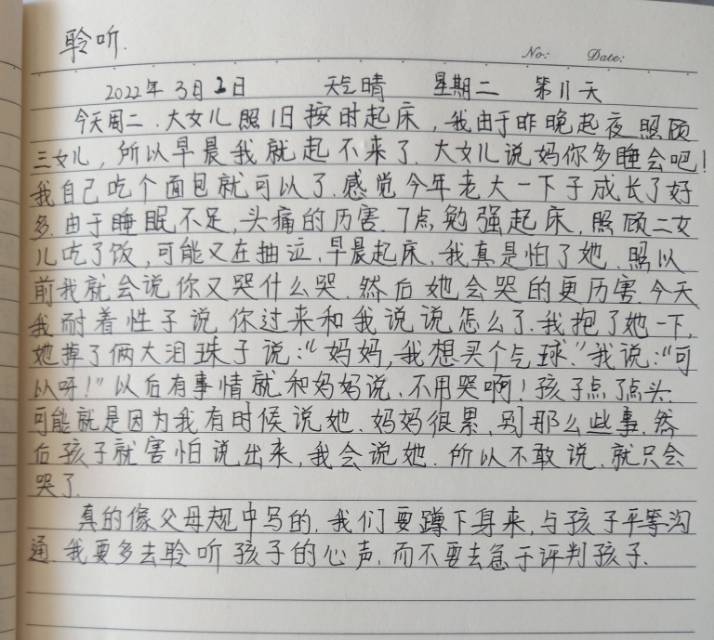 聆听.
No:    Date:
2022年 3月 2日    天气晴    星期二    第11天
今天周二.大女儿照旧按时起床,我由于昨晚起夜照顾
三女儿,所以早晨我就起不来了.大女儿说妈你多睡会吧!
我自己吃个面包就可以了.感觉今年老大一下子成长了好
多.由于睡眠不足,头痛的历害.7点勉强起床,照顾二女
儿吃了饭,可能又在抽泣.早晨起床.我真是怕了她.照以
前我就会说你又哭什么哭.然后她会哭的更历害.今天
我耐着性子说你过来和我说说怎么了.我抱了她一下,
她掉了俩大泪珠子说:“妈妈,我想买个气球.”我说:“可
以呀!”以后有事情就和妈妈说.不用哭啊!孩子点了点头.
可能就是因为我有时候说她.妈妈很累,别那么些事.然
后孩子就害怕说出来,我会说她.所以不敢说.就只会
哭了.
真的像父母规中写的.我们要蹲下身来,与孩子平等沟
通.我要多去聆听孩子的心声.而不要去急于评判孩子.